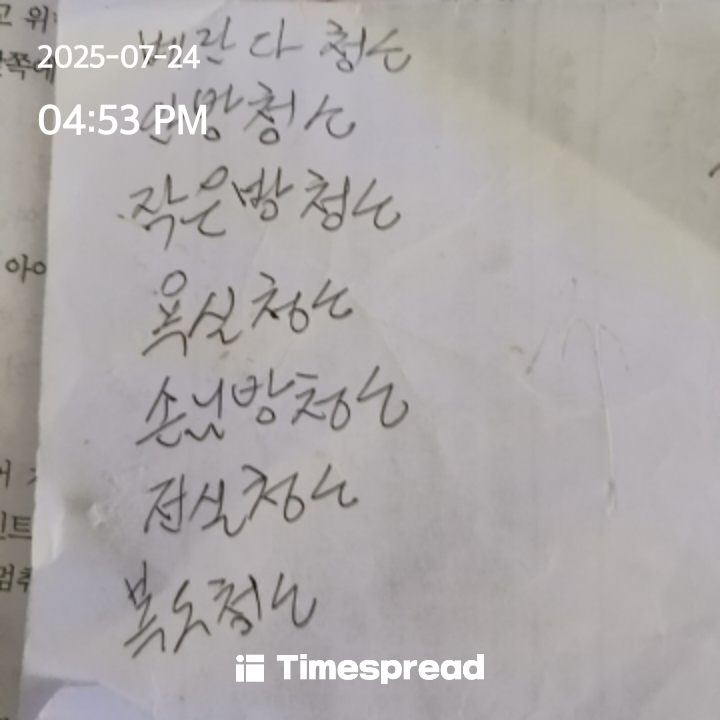 고 위
베란다 청소
2025-07-24
안쪽에
안방청소
04:53 PM
작은방 청소
아이
욕실청소
손님방청소
전실청소
인트
멈추
복도청소
Timespread